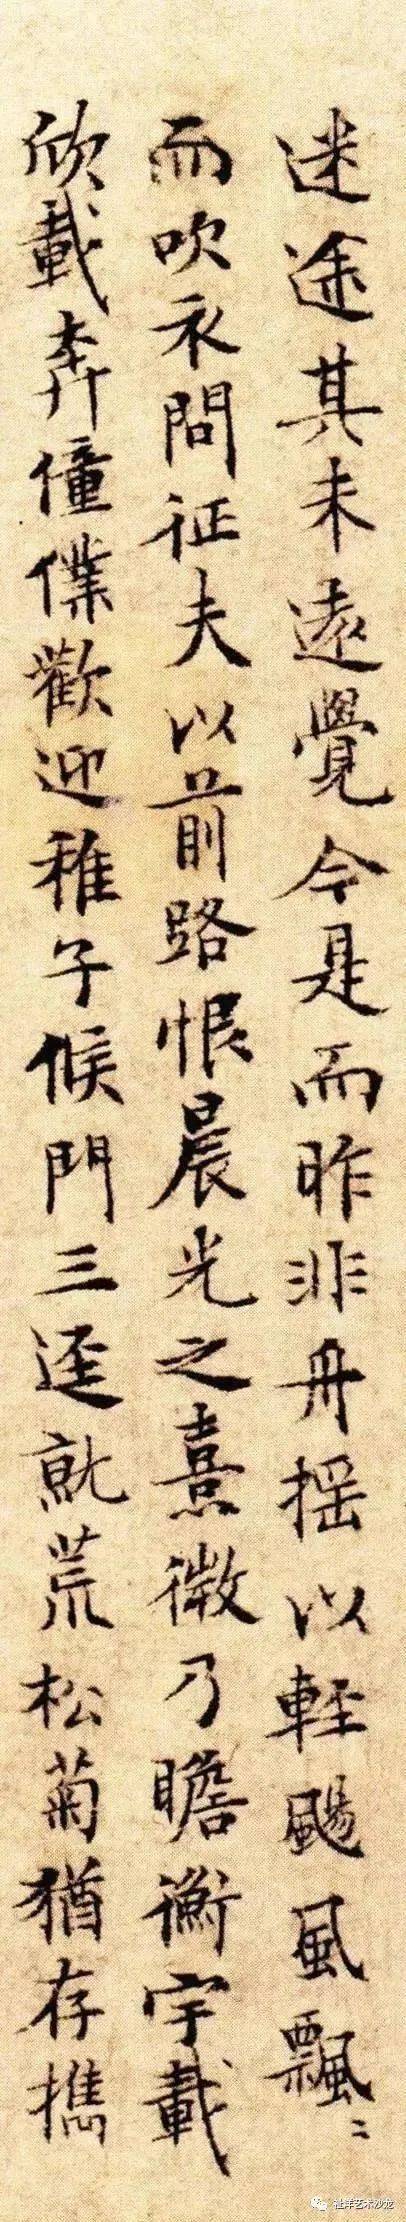 迷途其未遠覺今是而昨非舟摇以輕颺風飄〻
而吹衣問征夫以前路恨晨光之熹微乃瞻衡宇載
欣載奔僮僕歡迎稚子候門三逕就荒松菊猶存携
祉洋艺术沙龙